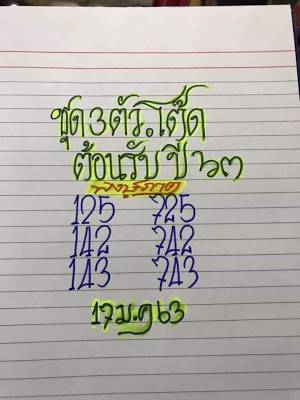 ชุด 3 ตัว.โต๊ด
ต้อนรับ ปี ๖๓
125 725
142 742
143 743
17 ม.ค 63